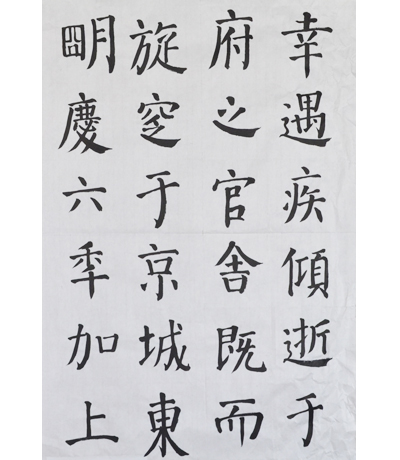 幸遇疾傾逝于
府之官舍既而
旋窆于京城東
朙慶六年加上